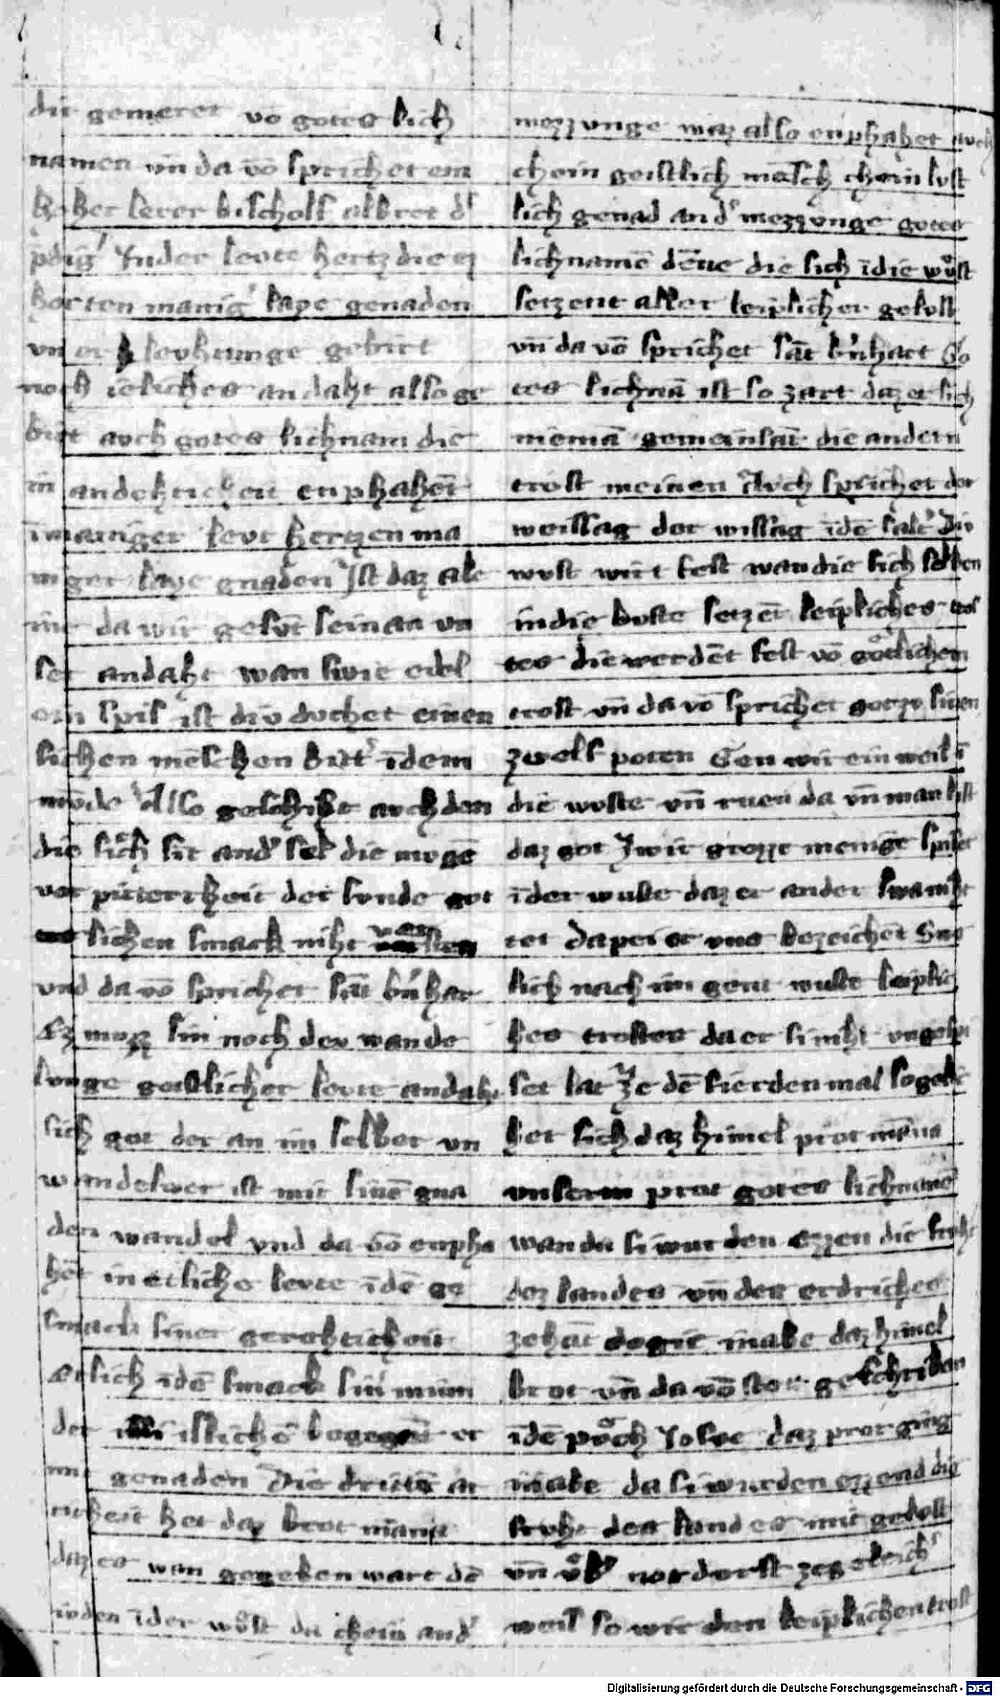 dir gemeret vō gotes lich
namen vn̄ da vō sprichet ein
hoher lerer bischolf albret d'
p̄dig' In der levte hertz die ez
horten manig' lay̍e genaden
vn er levhtunge gebirt
noch ieliches andaht also ge
birt avch gotes lichnam die
in andehticheit enphahēt
ī maniger levt hertzen ma
niger lay̍e gnaden Ist daz ake
da wir gesvͦt sein an vn
ser andaht wan swie edel
ein spis ist div dvchet einen
sichen mēschen bitt' ī dem
mvnde Also geschiht avch den
die sich sit an d' sel die mvgē
vor pitterkeit der svnde got
lichen smack niht
vnd da vō sprichet sāt b'nhar
Ez mvz sin noch dev wande
lvnge geistlicher levte andaht
sich got der an im selber vn
wandelwer ist mit sinē gna
den wandel vnd da vō enpha
hēt in etliche levte ī dē ge
smack siner gerehtickeit
Etlich ī dē smack sin' miin
der islichē begegent er
mit genaden Die dritte ar
cheit het daz brot manna
daz es wan gegeben wart dē
ivden ī der wuͦst da chein and'
mezzvnge waz also enphahet avch
chein geistlich mēsch chein lvst
lich genad an d' mezzvnge gotes
lichnamē dēne die sich ī die wuͦst
setzent aller leiplicher gelvst
vn̄ da vō sprichet sāt b'nhart Go
tes lichnā ist so zart daz er sich
niemā gemeinsāt die andern
trost meinen Avch sprichet der
weissag der wissag ī dē salt' Div
wust wirt feist wan die sich selben
in die wuste setzēt leipliches tros
tes die werdēt feist vō gotlichen
trost vn̄ da vō sprichet got zv sinen
zwelf poten Gen wir ein weil ī
die wuste vn̄ rven da vn̄ man list
daz got zwir grozze menige speiset
ī der wuste daz er ander swa niht
tet da pei er vns bezeichet Swe
lich nach im gent wuste leiplic
hes trostes da er si niht vngespi
set lat Ze dē fierden mal so gelic
het sich daz himel prot māna
vnserm prot gotes lichnamē
wan da si wurden ezzen die frvht
dez landes vn̄ des erdriches
zehāt da daz himel
brot vn̄ da vō stet geschriben
ī dē pvͦch Josve daz prot ging
abe da si wurden ezzend die
frvht des landes mit gelvst
vn̄ zegeleich'
weis so wir den leiplichen trost
Digitalisierung gefördert durch die Deutsche Forschungsgemeinschaft - DFG